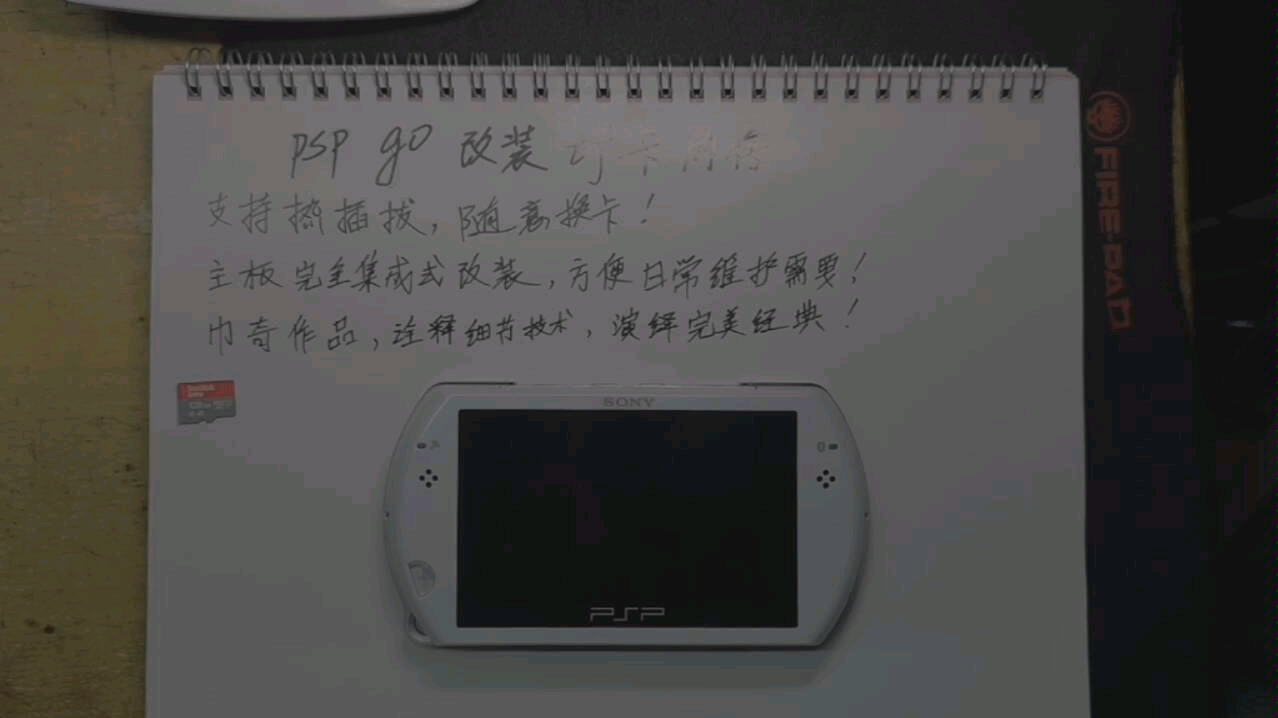 PSP go 改装 卡内存
支持热插拔，随意换卡！
主板完全集成式改装，方便日常维护需要！
巾奇作品，诠释细节技术，演绎完美经典！
SanDisk
SONY
PSP
FIRE-PAD